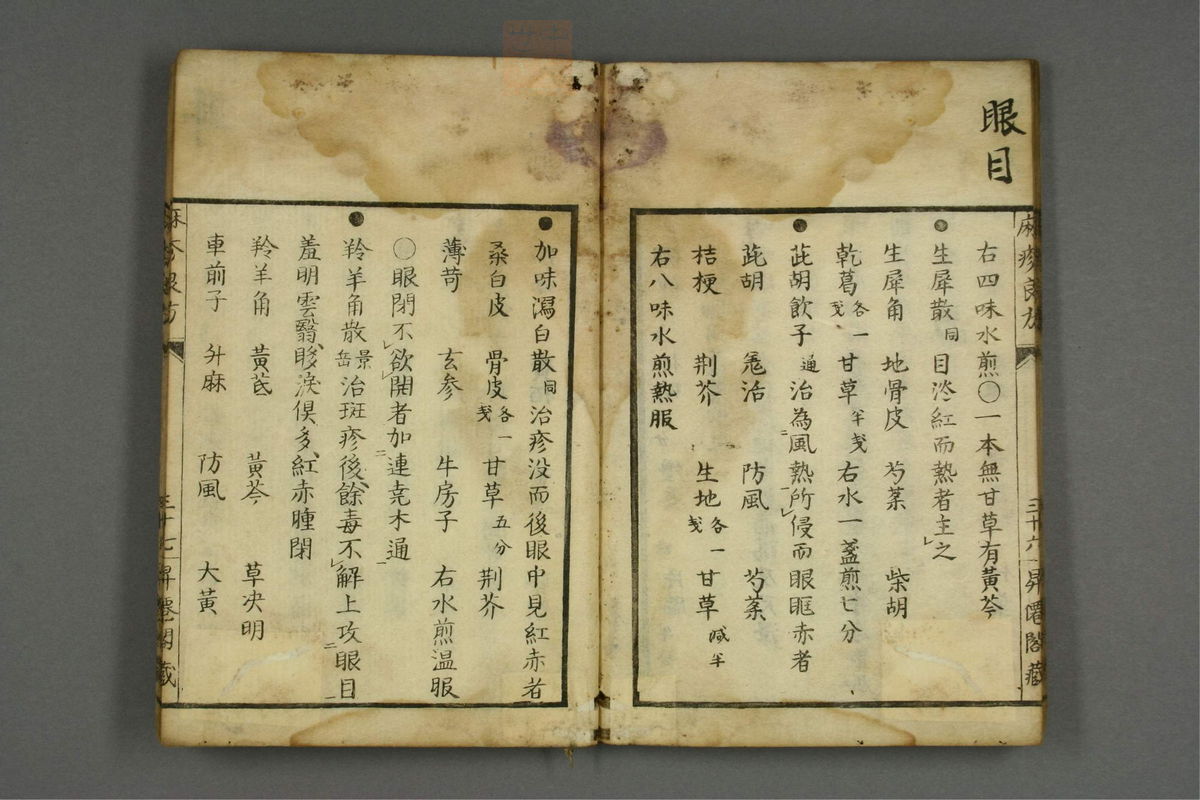 眼目
右四味水煎○一本無甘草有黃芩
●生犀散同目淡紅而熱者主之
生犀角 地骨皮 芍藥 柴胡
乾葛各一戔 甘草半戔 右水一盞煎七分
●茈胡飲子通治為風熱所侵而眼眶赤者
茈胡 羌活 防風 芍藥
桔梗 荆芥 生地各一戔 甘草減半
右八味水煎熱服
●加味瀉白散同治疹没而後眼中見紅赤者
桑白皮 骨皮各一戔 甘草五分 荆芥
薄苛 玄参 牛房子 右水煎温服
○眼閉不欲開者加連壳木通
●羚羊角散景岳治斑疹後餘毒不解上攻眼目
羞明雲翳眵淚俱多紅赤腫閉
羚羊角 黃芪 黃芩 草决明
車前子 升麻 防風 大黃
三十六 昇
三十七 昇